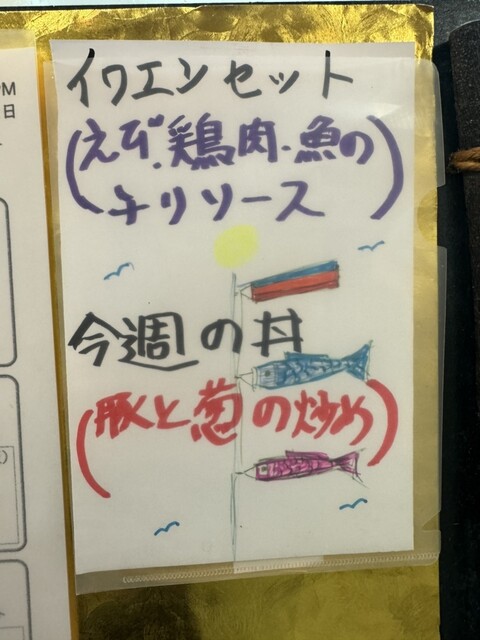 イワエンセット
(えび.鶏肉.魚の
チリソース)
今週の丼
(豚と葱の炒め)